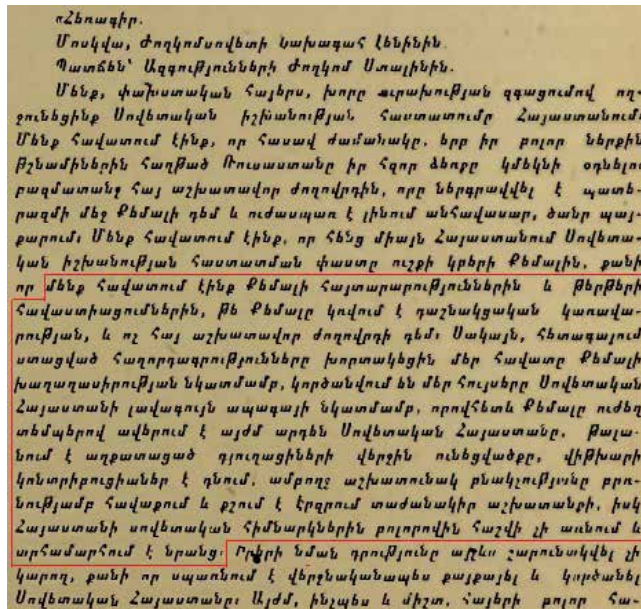 «Հեռագիր.
Մոսկվա, ժողկոմսովետի նախագահ Լենինին.
Պատճեն՝ Ազգությունների ժողկոմ Ստալինին.
Մենք, փախստական հայերս, խորը ուրախության զգացումով ող-
ջունեցինք Սովետական իշխանության հաստատումը Հայաստանում:
Մենք հավատում էինք, որ հասավ ժամանակը, երբ իր բոլոր ներքին
թշնամիներին հաղթած Ռուսաստանը իր հզոր ձեռքը կմեկնի օգնելու
բազմատանջ հայ աշխատավոր ժողովրդին, որը ներգրավվել է պատե-
րազմի մեջ Քեմալի դեմ և ուժասպառ է լինում անհավասար, ծանր պայ-
քարում: Մենք հավատում էինք, որ հենց միայն Հայաստանում Սովետա-
կան իշխանության հաստատման փաստը ուշքի կբերի Քեմալին, քանի
որ մենք հավատում էինք Քեմալի հայտարարություններին և թերթերի
հավաստիացումներին, թե Քեմալը կռվում է դաշնակցական կառավա-
րության, և ոչ հայ աշխատավոր ժողովրդի դեմ: Սակայն, հետագայում
ստացված հաղորդագրությունները խորտակեցին մեր հավատը Քեմալի
խաղաղասիրության նկատմամբ, կործանվում են մեր հույսերը Սովետական
Հայաստանի լավագույն ապագայի նկատմամբ, որովհետև Քեմալը ուժեղ
տեմպերով ավերում է այժմ արդեն Սովետական Հայաստանը, թալա-
նում է աղքատացած գյուղացիների վերջին ունեցվածքը, վիթխարի
կոնտրիբուցիաներ է դնում, ամբողջ աշխատունակ բնակչությունը բռ-
նությամբ հավաքում և քշում է Էրզրում տաժանակիր աշխատանքի, իսկ
Հայաստանի սովետական հիմնարկներին բոլորովին հաշվի չի առնում և
արհամարհում է նրանց: Իրերի նման դրությունը այլևս շարունակվել չի
կարող, քանի որ սպառնում է վերջնականապես քայքայել և կործանել
Սովետական Հայաստանը: Այժմ, ինչպես և միշտ, հայերի բոլոր հա-